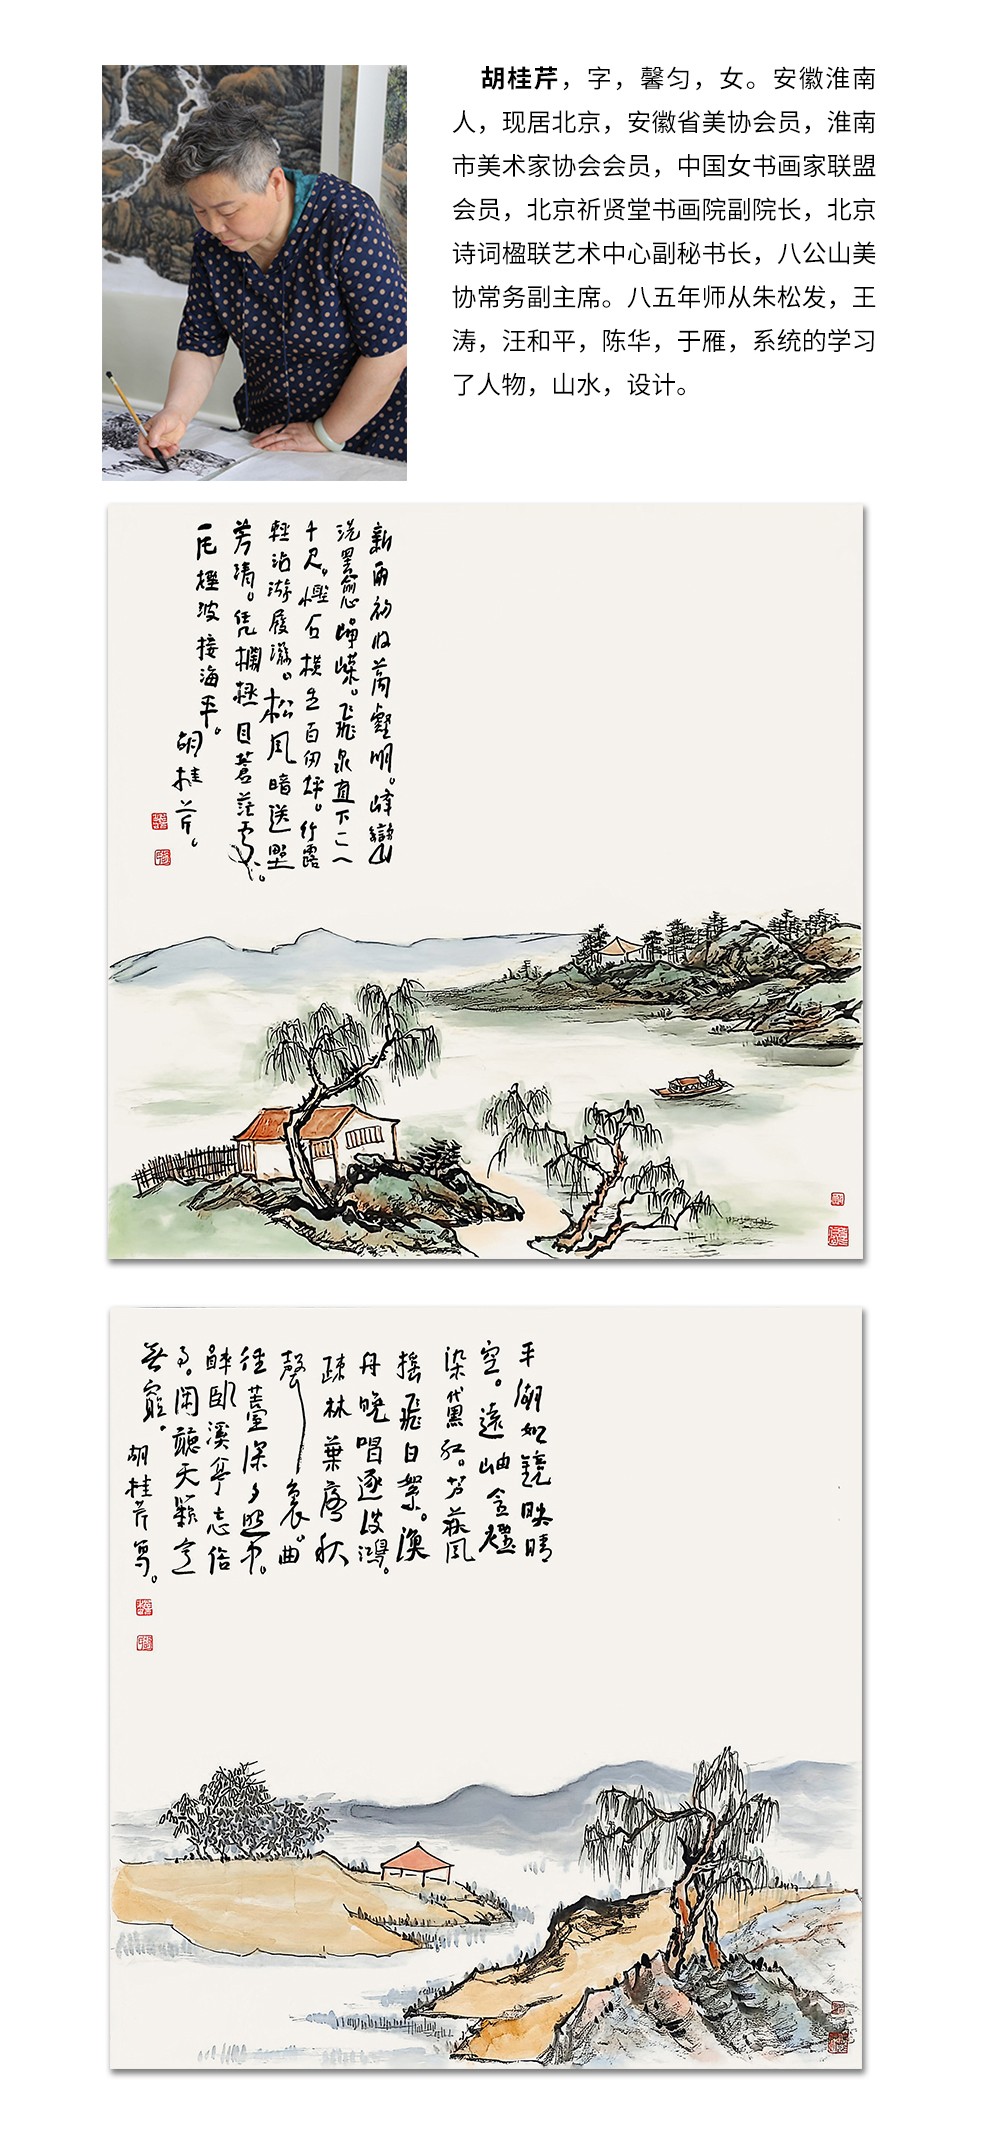 胡桂芹，字，馨匀，女。安徽淮南
人，现居北京，安徽省美协会员，淮南
市美术家协会会员，中国女书画家联盟
会员，北京祈贤堂书画院副院长，北京
诗词楹联艺术中心副秘书长，八公山美
协常务副主席。八五年师从朱松发，王
涛，汪和平，陈华，于雁，系统的学习
了人物，山水，设计。
新雨初收萬壑明。峰巒
洗墨愈崢嶸。飛泉直下二八
千尺。怪石橫生百仞坪。竹露
輕沾游屐滋。松風暗送野
芳清。凭欄極目蒼茫處。
一片煙波接海平。
胡桂芹。
平湖如鏡映晴
空。遠岫含煙
染黛紅。芦荻風
搖飛白絮。漁
舟晚唱逐波鴻。
疎林葉落秋
聲裏。曲
徑苔深夕照中。
醉臥溪亭忘俗
事。闲聽天籟意
無窮。
胡桂芹寫。